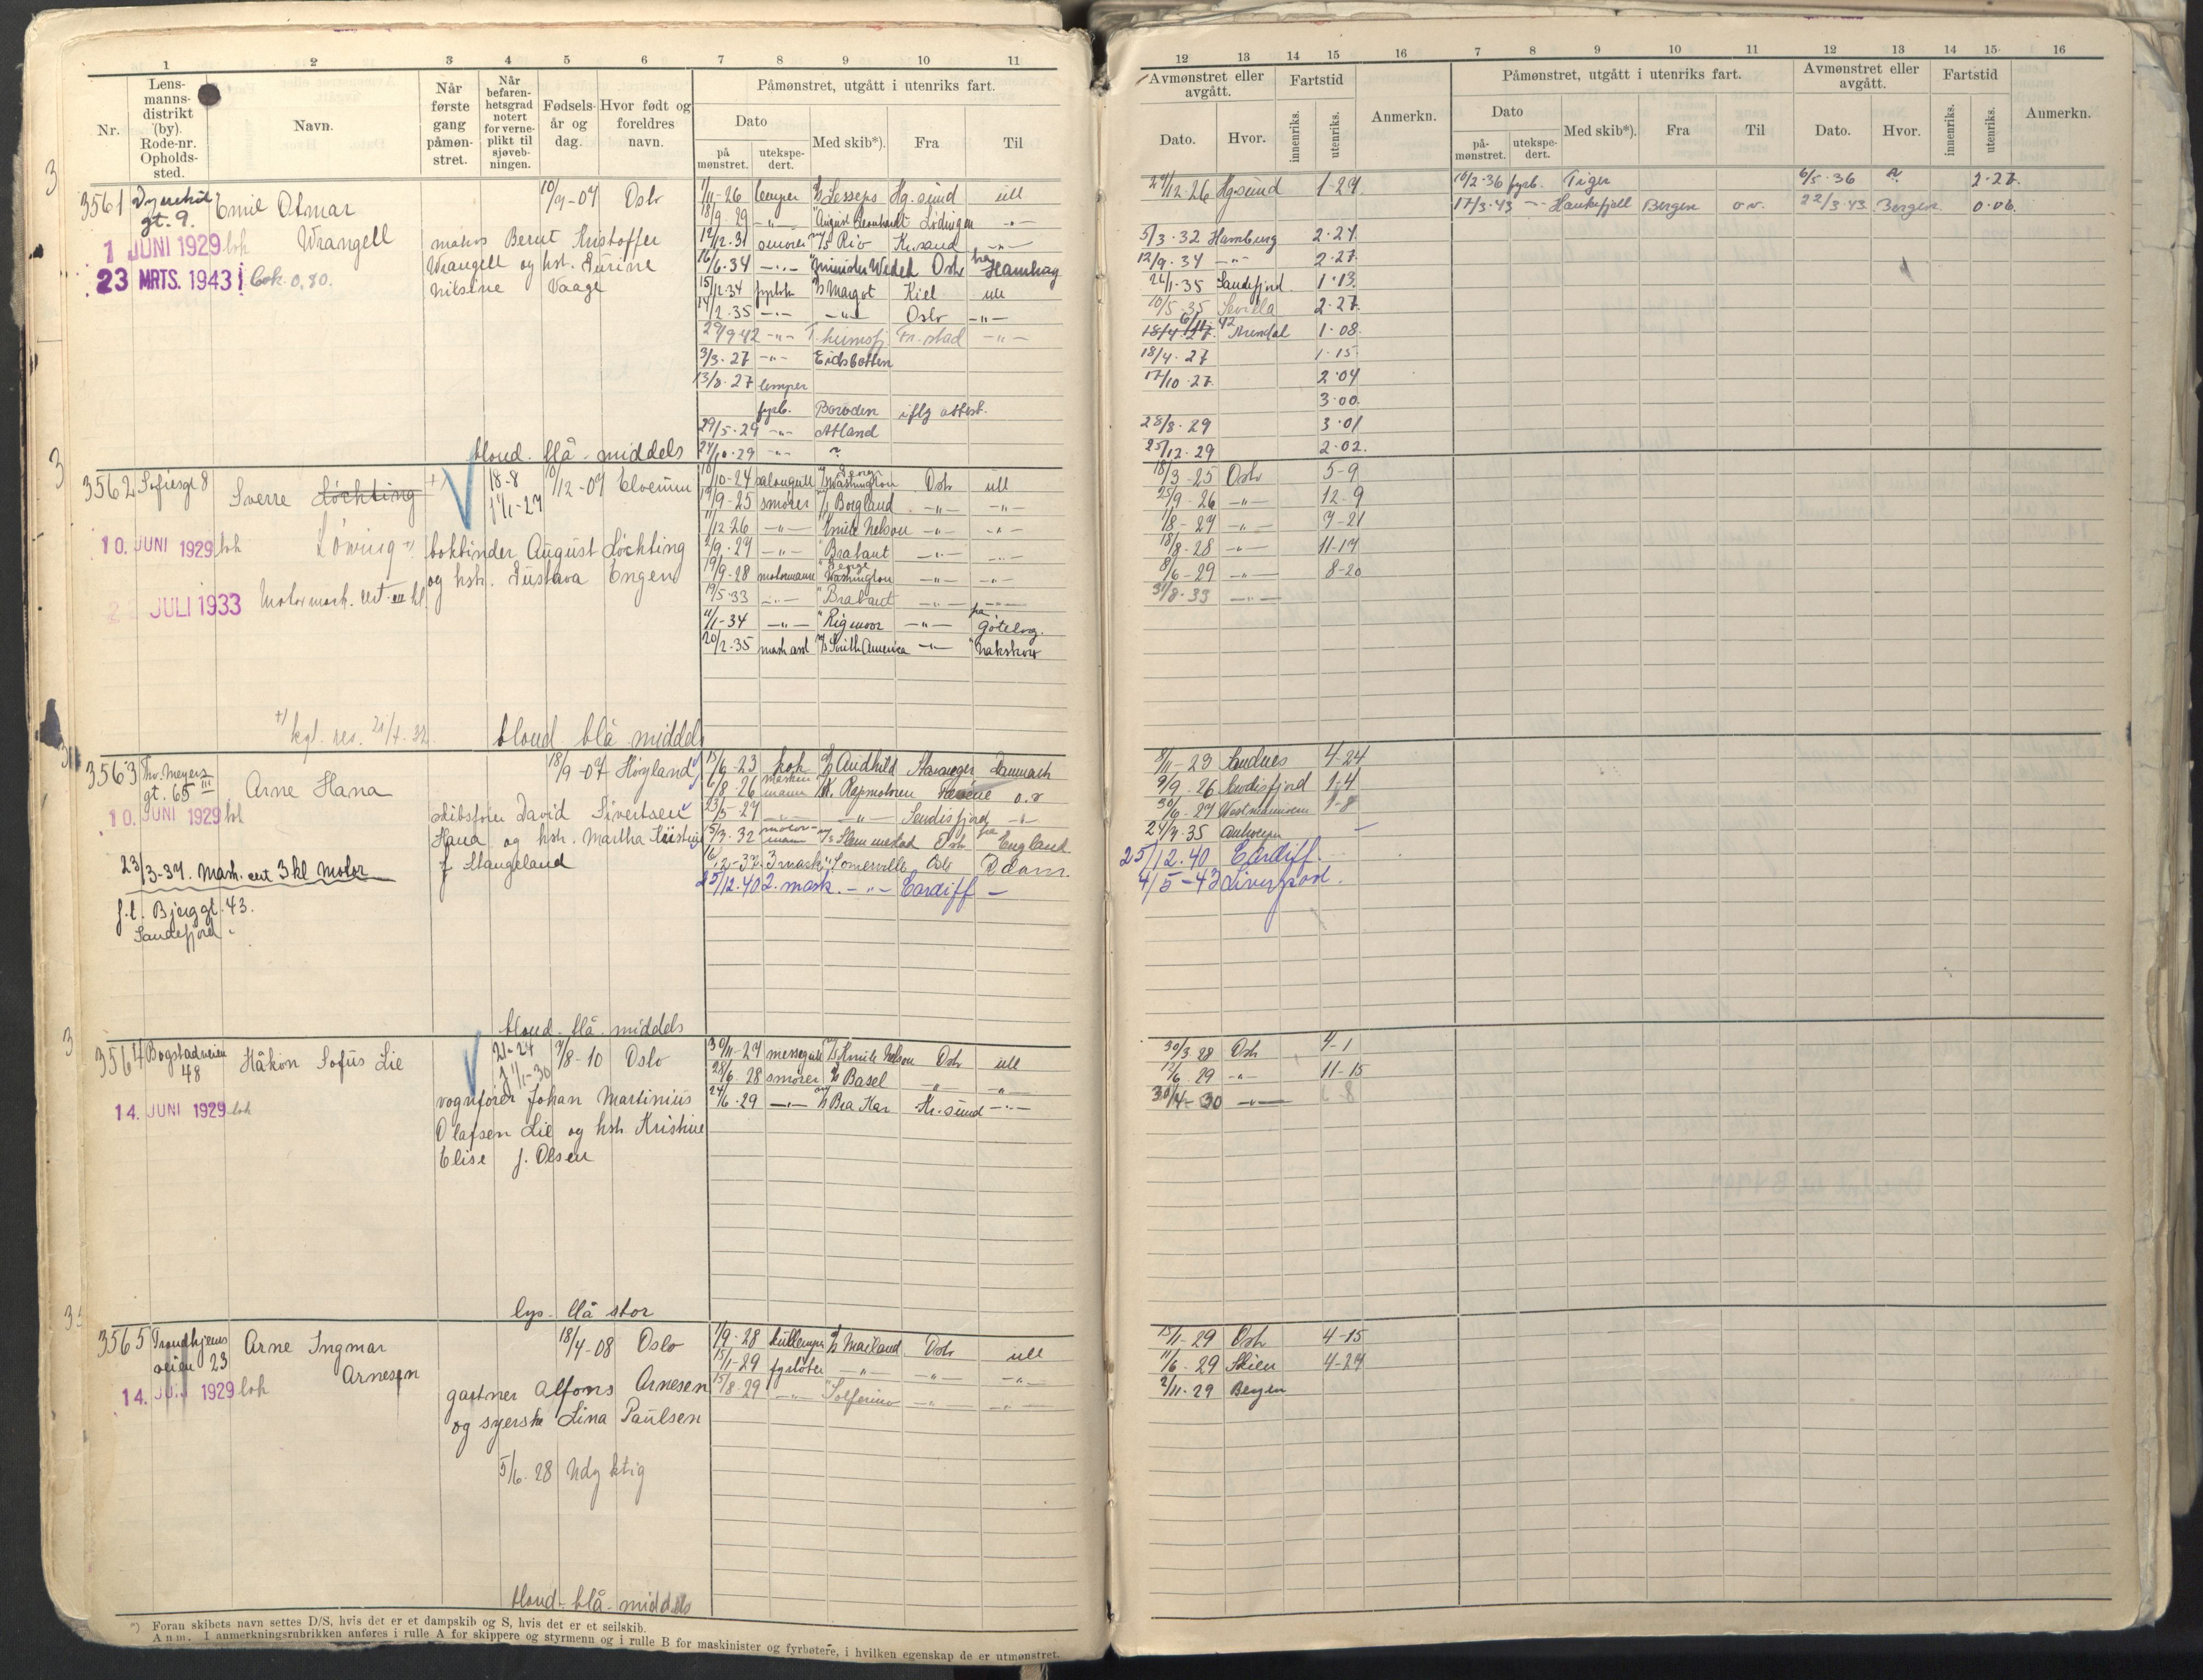 1 2 3 4 5 6 7 8 9 10 11
Nr.
Lens-
manns-
distrikt
(by).
Rode-nr.
Opholds-
sted.
Navn.
Når
første
gang
påmøn-
stret.
Når
befaren-
hetsgrad
notert
for verne-
plikt til
sjøveb-
ningen.
Fødsels-
år og
dag.
Hvor født og
foreldres
navn.
Påmønstret, utgått i utenriks fart.
Dato
på
mønstret.
utekspe-
dert.
Med skib*).
Fra
Til
3561
gt. 9.
Emil Otmar
Wrangell
10/9-07 Oslo
1 JUNI 1929 lok
23 MRTS. 1943
Bok. 0,80.
Bernt Kristoffer
Wrangell og hst.
Nilsine Vaage
1/11-26 lemper Lesseps Hg.sund utl
18/9 29 -"- August Leonhardt Lødingen -"-
12/12.31 Rio Kr.sand -"-
16/6.34 -"- Minister Wedel Oslo fra Hamburg
15/12.34 Margot Kiel utl
14/2.35 -"- -"- Oslo -"-
29/9 42 -"- Fr.stad -"-
3/3.27 -"- Eidsbotten
13/8.27 lemper
fyrb. iflg attest.
29/5.29 -"-
24/10.29 -"- ?
blond. blå. middels
3562 Sofiesgt 8
Sverre Løchting
Lønning
+)
18-8
11/1-27
10/12-07 Elverum
10. JUNI 1929 lok
JULI 1933
bokbinder August Løchting
og hst. Gustava Engen
Motormask. cert. III kl
18/10-24 salongutt Washington Oslo utl
19/9-25 smører Borgland -"- -"-
1/12 26 -"- Knute Nelson -"- -"-
2/9.27 -"- Brabant -"- -"-
19/9-28 motormann Washington -"- -"-
19/5-33 -"- Brabant -"- -"-
11/1-34 -"- Rigmor -"- fra Gøtebg.
20/2.35 mask asst M/S South America -"- Nakskov
+) kgl. res. 21/4-32.
blond blå middels
3563 Thv. Meyers
gt. 65 III
Arne Hana
18/9-07 Høyland
10. JUNI 1929 lok
skibsfører David Sivertsen
Hana og hst. Martha Kristine
f. Stangeland
23/3-37. Mask. cert 3 kl Motor
f.t. Bjerggt. 43.
Sandefjord.
15/6-23 kok Audhild Stavanger Danmark
6/8.26 mann o.v
23/5-27 -"- -"- Seidisfjord -"-
5/3.32 motormann Slemmestad Oslo fra England
3 mask. Somerville Oslo
25/12.40 2. mask. -"- Cardiff -
blond. blå. middels
3564 Bogstadveien
48
Håkon Sofus Lie
21-24
11/1-30
7/8-10 Oslo
14. JUNI 1929 lok
vognfører Johan Martinius
Olafsen Lie og hst. Kristine
Elise f. Olsen
30/11-27 messegutt Knute Nelson Oslo utl
28/6.28 smører Basel -"- -"-
24/6.29 -"- Bra Kar Kr.sund -"-
lys- blå stor
3565 Trondhjems
veien 23
Arne Ingmar
Arnesen
18/4-08 Oslo
14. JUNI 1929 lok
gartner Alfons Arnesen
og syerske Lina Paulsen
5/6.28 Udyktig
1/9-28 kullemper Mailand Oslo utl
15/1-29 fyrbøter -"- -"- -"-
15/8.29 -"- Solferino -"- -"-
blond- blå- middels
*) Foran skibets navn settes D/S, hvis det er et dampskib og S, hvis det er et seilskib.
Anm. I anmerkningsrubrikken anføres i rulle A for skippere og styrmenn og i rulle B for maskinister og fyrbøtere, i hvilken egenskap de er utmønstret.
12 13 14 15 16 7 8 9 10 11 12 13 14 15 16
Avmønstret eller
avgått.
Dato.
Hvor.
Fartstid
innenriks.
utenriks.
Anmerkn.
Påmønstret, utgått i utenriks fart.
Dato
på-
mønstret.
utekspe-
dert.
Med skib*).
Fra
Til
Avmønstret eller
avgått.
Dato.
Hvor.
Fartstid
innenriks.
utenriks.
Anmerkn.
29/12-26 Hg.sund 1-29 16/2-36 fyrb. Tiger 6/5.36 ? 2-27.
17/3.43 -"- Haukefjell Bergen o.v. 22/3.43. Bergen. 0.06.
5/3.32 Hamburg 2-21
12/9.34 -"- 2.27.
26/1-35 Sandefjord. 1.13.
10/5.35 Sevilla 2.27.
Arendal 1.08.
18/4.27 1.15
17/10.27. 2.04
3.00.
28/8.29 3.01
25/12.29 2.02.
18/3-25 Oslo 5-9
25/9-26 -"- 12-9
1/8-27 -"- 7-21
18/8-28 -"- 11-17
8/6-29 -"- 8-20
31/8.33 -"-
8/11-23 Sandnes 4-24
9/9.26 Seidisfjord 1-4
30/6-27 1-8
24/9.35 Antwerpen -
25/12.40 Cardiff.
4/5-43 Liverpool.
30/3 28 Oslo 4-1
12/6.29 -"- 11-15
30/4-30 -"-
15/1-29 Oslo 4-15
11/6.29 Skien 4-27
2/11.29 Bergen